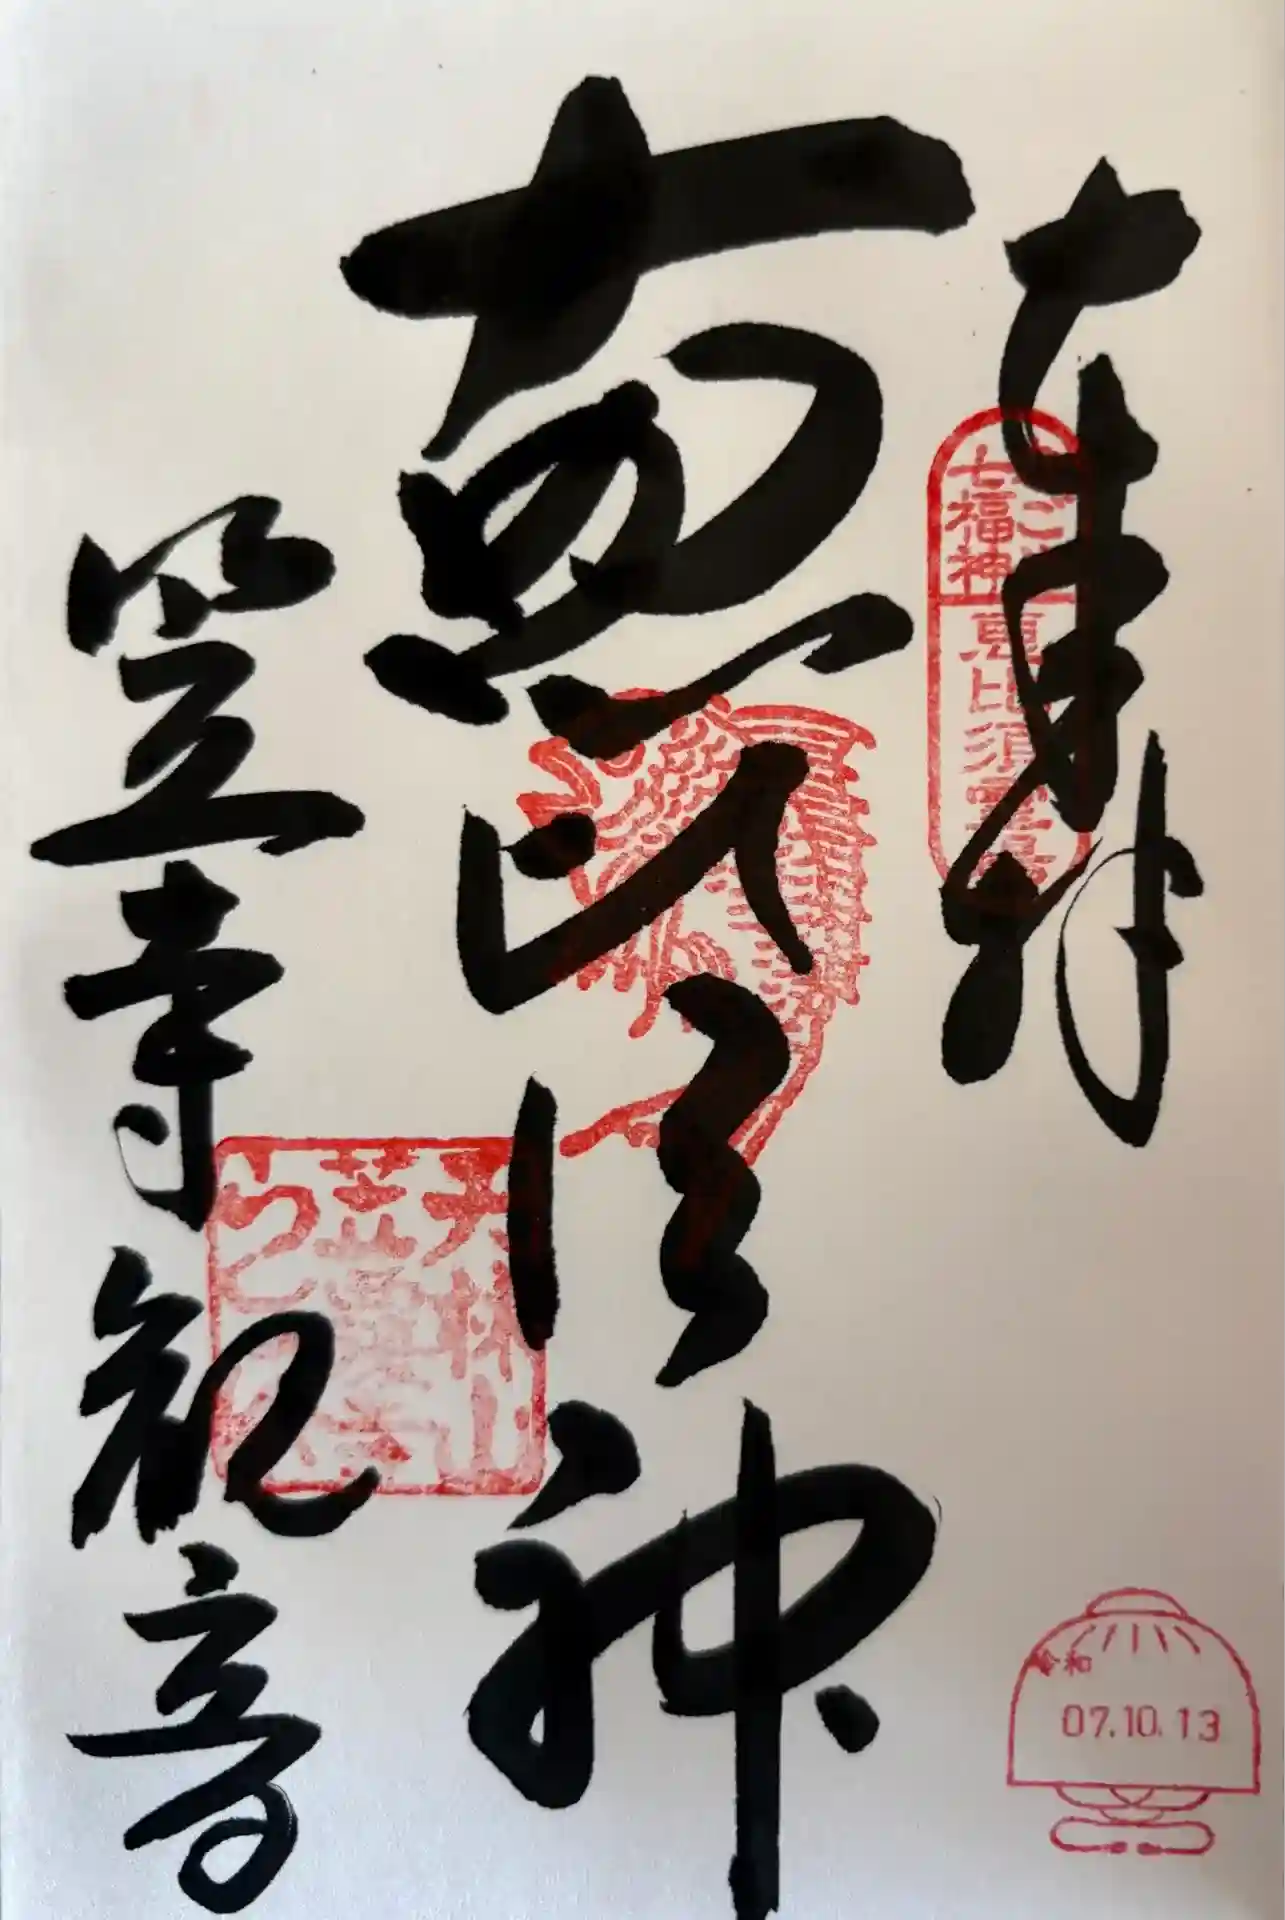 奉拝
七福神
恵比須
恵比須神
天林山
笠覆寺
笠寺観音
令和
07.10.13